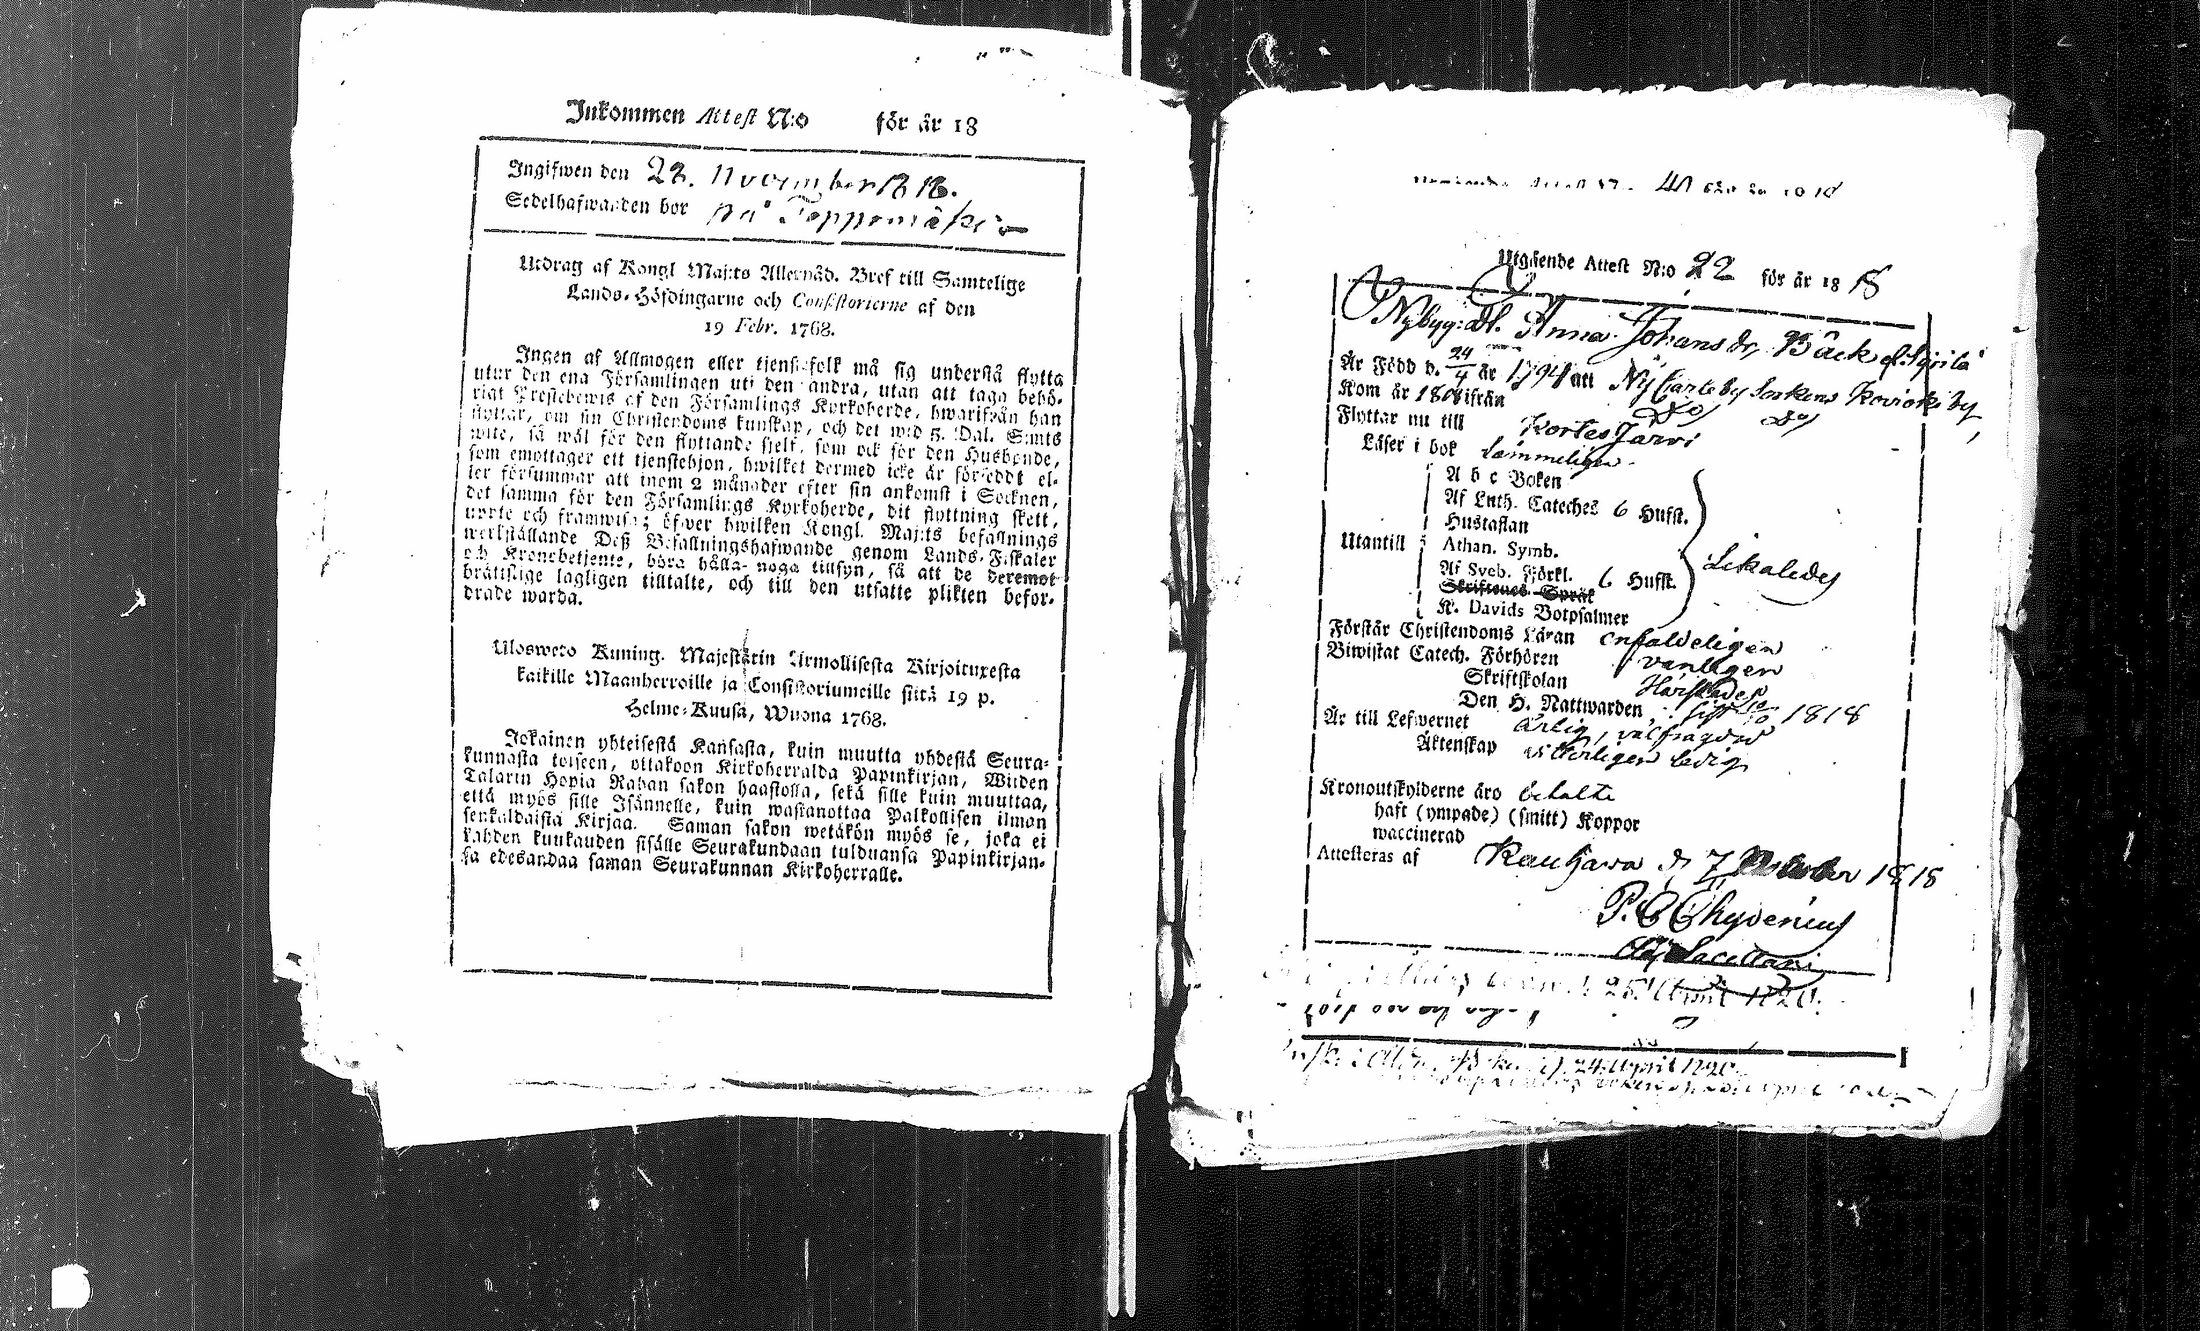 Inkommen Attest N:o för år 18
Ingifwen den 28. November 1818.
Sedelhafwanden bor på Toppomäki
Utdrag af Kongl Maj:ts Allernåd. Bref till Samtelige
Lands-Höfdingarne och Consistorierne af den
19 Febr. 1768.
Ingen af Allmogen eller tjenstefolk må sig understå flytta
utur den ena Församlingen uti den andra, utan att taga behö-
rigt Prestebewis af den Församlings Kyrkoherde, hwarifrån han
flyttar, om sin Christendoms kunskap, och det wid 5. Dal. S:mts
wite, så wäl för den flyttande sjelf, som ock för den Husbonde,
som emottager ett tjenstehjon, hwilket dermed icke är försedt el-
ler försummar att inom 2 månader efter sin ankomst i Socknen,
det samma för den Församlings Kyrkoherde, dit flyttning skett,
upte och framwisa; öfwer hwilken Kongl. Maj:ts befallnings
werkställande Deß Befallningshafwande genom Lands-Fiskaler
och Kronobetjente, böra hålla noga tillsyn, så att de deremot
brättslige lagligen tilltalte, och till den utsatte plikten befor-
drade warda.
Ulosweto Kuning. Majestätin Armollisesta Kirjoituxesta
kaikille Maanherroille ja Consistoriumeille siitä 19 p.
Helme-Kuusa, Wuona 1768.
Jokainen yhteisestä Kansasta, kuin muutta yhdestä Seura-
kunnasta toiseen, ottakoon Kirkoherralda Papinkirjan, Wiiden
Talarin Hopia Rahan sakon haastolla, sekä sille kuin muuttaa,
että myös sille Isännelle, kuin wastanottaa Palkollisen ilman
senkaldaista Kirjaa. Saman sakon wetäkön myös se, joka ei
kahden kuukauden sisälle Seurakundaan tulduansa Papinkirjan-
sa edesandaa saman Seurakunnan Kirkoherralle.
Utgående Attest N:o 22 för år 1818
Nybyg: dl. Anna Johansdr, Bäck el.
Är Född d. 24/4 år 1794 att Ny Carleby Sockens Kovioki by
Kom år 1808 ifrån Do Do
Flyttar nu till Kortesjärvi
Läser i bok lämmeligen.
A b c Boken
Af Luth. Cateches 6 Hufst.
Hustaflan
Utantill Athan. Symb. Likaledes
Af Sveb. Förkl. 6 Hufst.
Skriftenes Språk
K. Davids Botpsalmer
Förstår Christendoms Läran enfaldeligen
Biwistat Catech. Förhören vanligen
Skriftskolan
Den H. Nattwarden sist 1818
Är till Lefwernet ärlig, välfrägdad
Äktenskap witterligen ledig
Kronoutskylderne äro betalte
haft (ympade) (smitt) Koppor
waccinerad
Attesteras af Kauhava d. 7 1818
P. C Chydenius
Sacellani
25 April 1820.
24 April 1820